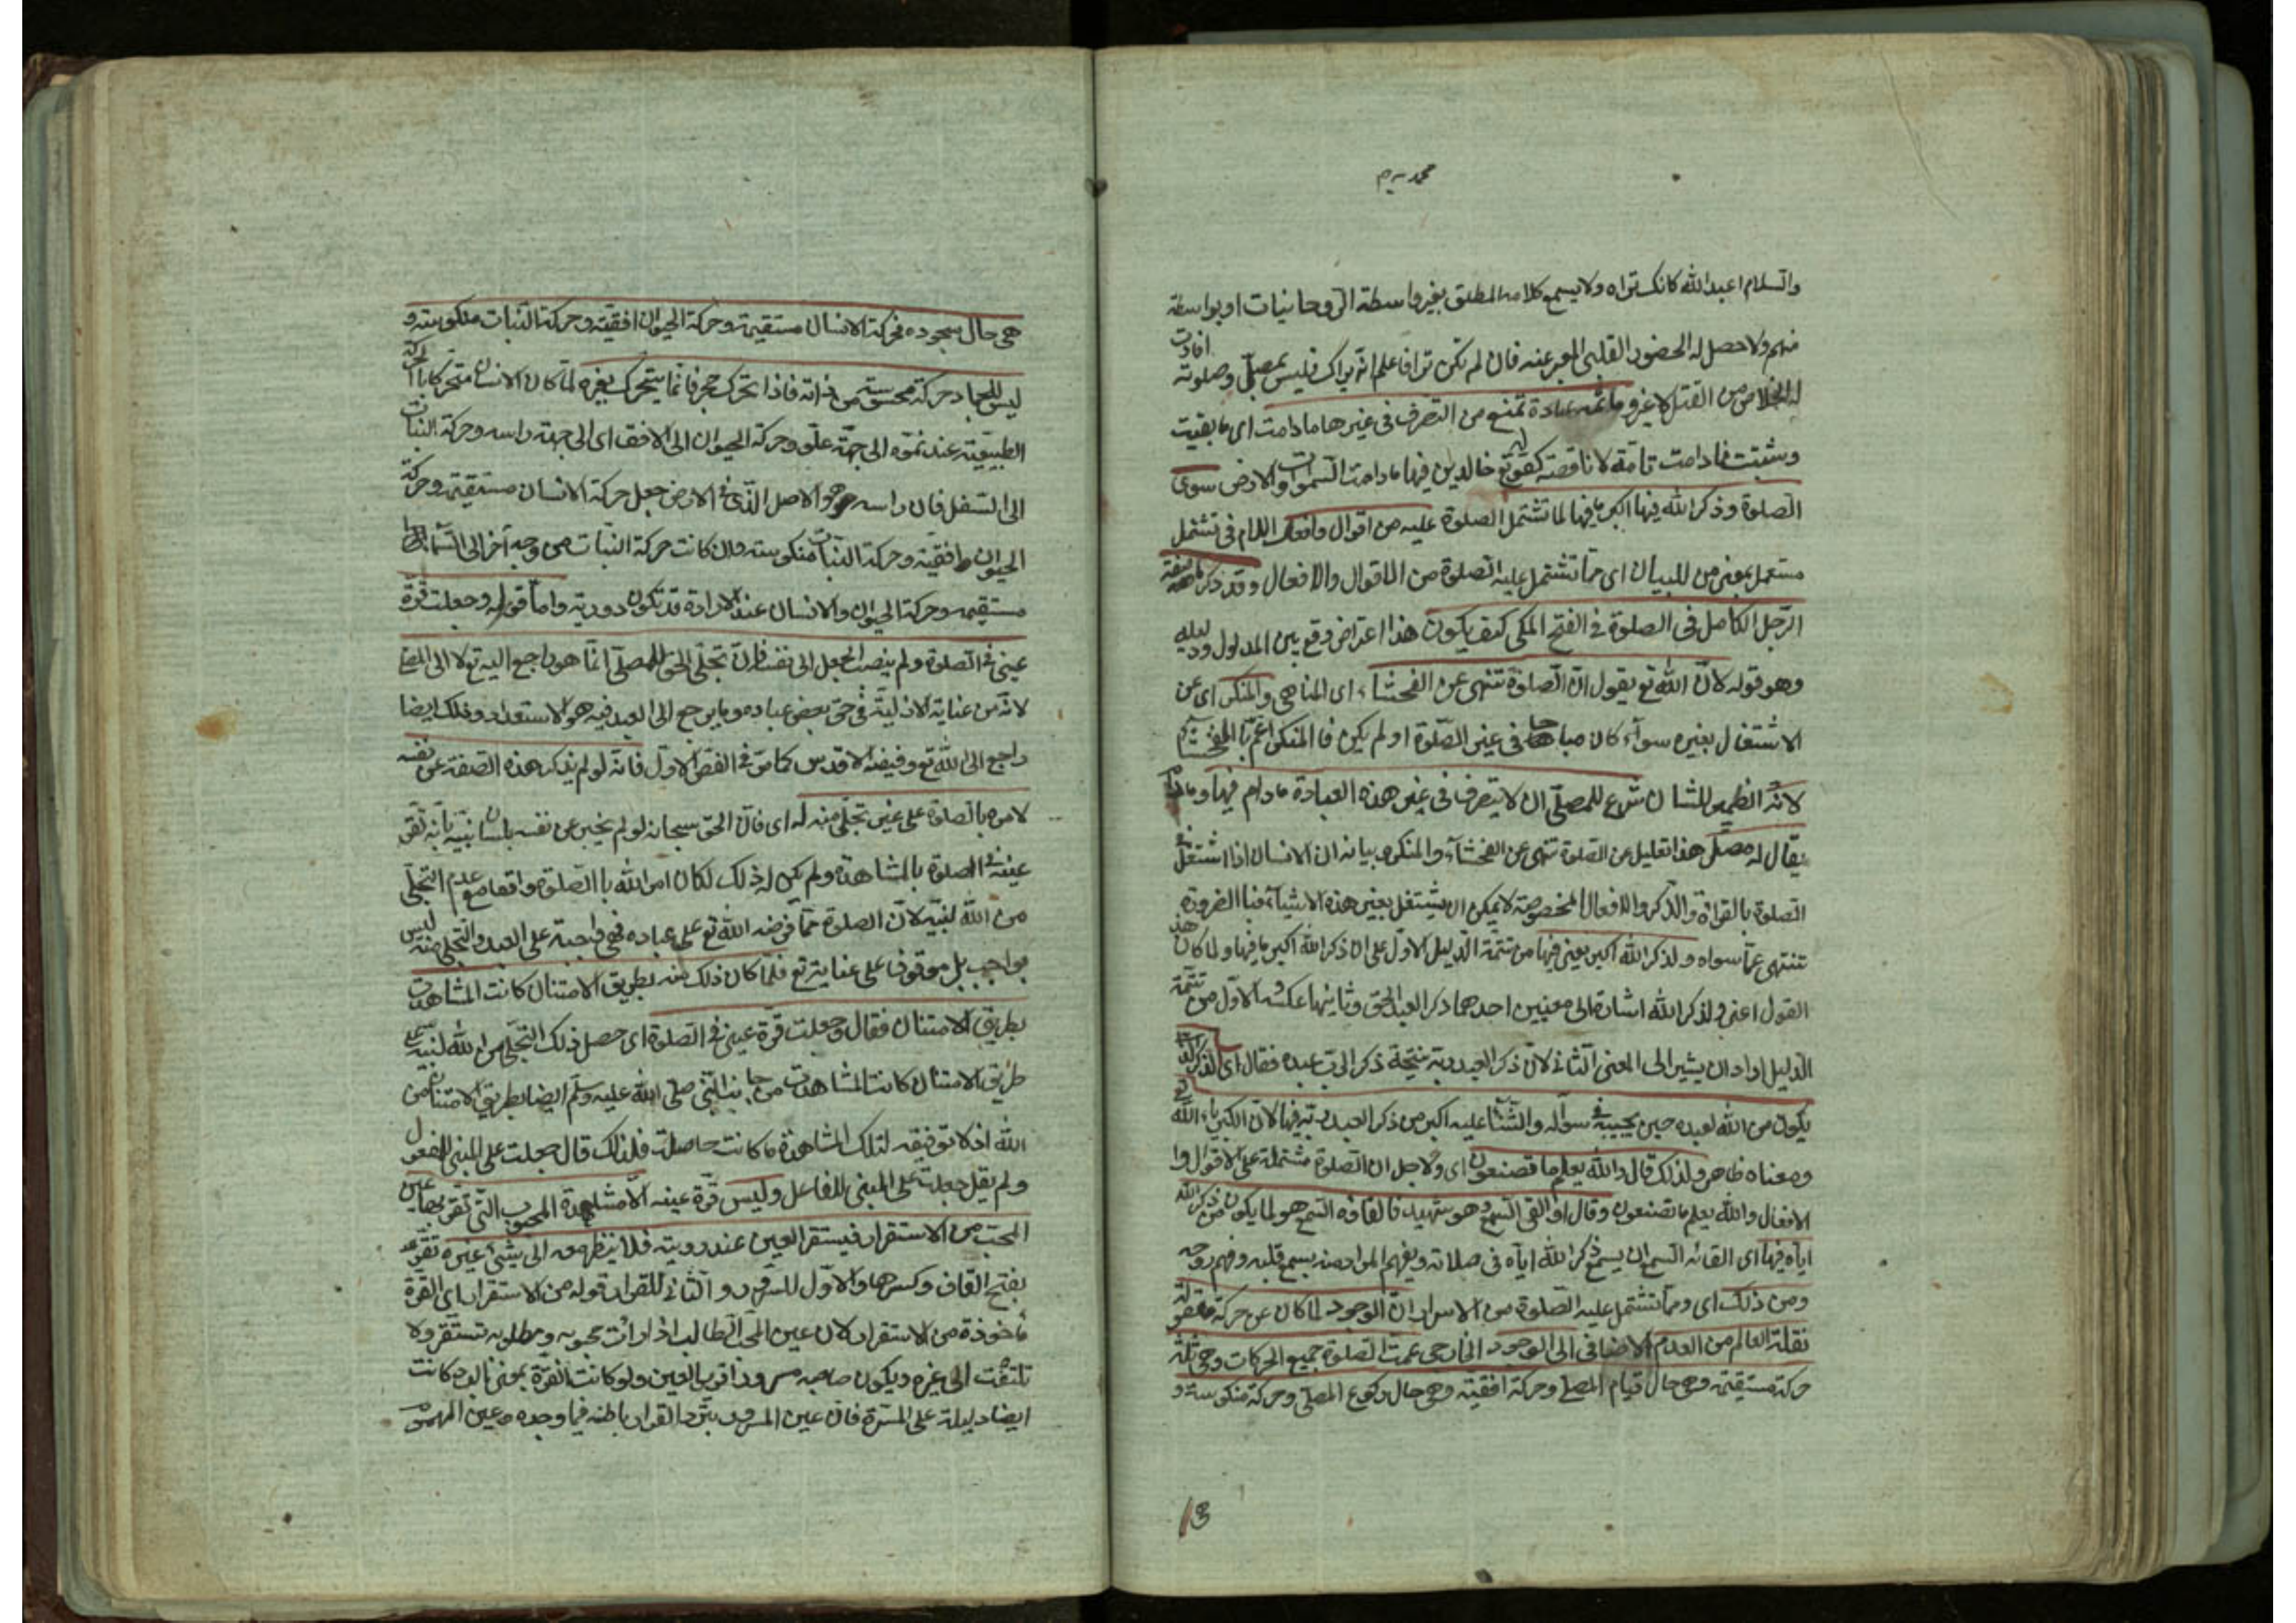 محمديه م
والسلام اعبد الله كانك تراه ولا يسمع كلامه المطلق بغير واسطة الروحانيات او بواسطة
منهم ولا حصل له الحضور القلبى المعبر عنه فان لم تكن تراه فاعلم انه يراك فليس بمصلّ وصلوته افادت
له الخلاص من القتل لا غير وما ثمه عبادة تمنع من التصرف فى غيرها ما دامت اى ما بقيت
وثبتت فما دامت تامة لا ناقصة كقوله تع خالدين فيها ما دامت السموات والارض سوى
الصلوة وذكر الله فيها اكبر ما فيها لما تشتمل الصلوة عليه من اقوال وافعال اللام فى تشتمل
مستعمل بمعنى من للبيان اى مما تشتمل عليه الصلوة من الاقوال والافعال وقد ذكرنا صفة
الرجل الكامل فى الصلوة فى الفتح المكى كيف يكون هذا اعتراض وقع بين المدلول ودليله
وهو قوله لان الله تع يقول ان الصلوة تنهى عن الفحشاء اى المناهى والمنكر اى عن
الاشتغال بغيره سواء كان مباحا فى غير الصلوة او لم يكن فالمنكر اعم با الفحشاء
لانه الضمير للشان شرع للمصلى ان لا يتصرف فى غير هذه العبادة ما دام فيها وما دام
يقال له مصل هذا تعليل عن الصلوة تنهى عن الفحشاء والمنكر وبيانه ان الانسان اذا اشتغل فى
الصلوة بالقراة والذكر والافعال المخصوصة لا يمكن ان يشتغل بغير هذه الاشياء فبا الضرورة
تنتهى عما سواه ولذكر الله اكبر يعنى فيها من تتمة الدليل الاول على ان ذكر الله اكبر ما فيها ولما كان هذا
القول اعنى ولذكر الله اشارة الى معنيين احدهما ذكر العبد الحق وثانيهما عكسه والاول من تتمة
الدليل اراد ان يشير الى المعنى الثانى لان ذكر العبد ربه نتيجة ذكر الرب عبده فقال اى الذكر الذى
يكون من الله لعبده حين يجيبه فى سؤاله والثناء عليه اكبر من ذكر العبد ربه فيها لان الكبرياء لله تع
ومعناه ظاهر ولذلك قال والله يعلم ما تصنعون اى ولاجل ان الصلوة مشتملة على الاقوال وا
الافعال والله يعلم ما تصنعون وقال او القى السمع وهو شهيد فالقاؤه السمع هو لما يكون من ذكر الله
اياه فيها اى القائه السمع ان يسمع ذكر الله اياه فى صلاته ويفهم المراد منه بسمع قلبه وفهم روحه
ومن ذلك اى ومما تشتمل عليه الصلوة من الاسرار ان الوجود لما كان عن حركة معقولة
نقلت العالم من العدم الاضافى الى الوجود الخارجى عمت الصلوة جميع الحركات وهى ثلثة
حركة مستقيمة وهى حال قيام المصلى وحركة افقية وهى حال ركوع المصلى وحركة منكوسة و
13
هى حال سجوده فحركة الانسان مستقيمة وحركة الحيوان افقية وحركة النبات منكوسة و
ليس للجماد حركة محسوسة من ذاته فاذا تحرك حجر فانما يتحرك بغيره لما كان الانسان متحركا با الحركة
الطبيعية عند نموه الى جهة علو وحركة الحيوان الى الافق اى الى جهة راسه وحركة النبات
الى السفل فان راسه هو الاصل الذى فى الارض جعل حركة الانسان مستقيمة وحركة
الحيوان افقية وحركة النبات منكوسة وان كانت حركة النبات من وجه آخر الى السماء
مستقيمة وحركة الحيوان والانسان عند الارادة قد تكون دورية واما قوله وجعلت قرة
عينى فى الصلوة ولم ينصب الجعل الى نفسه فان تجلى الحق للمصلى انما هو راجع اليه تع لا الى المصلى
لانه من عناية الازلية فى حق بعض عباده وما يرجع الى العبد فيه هو الاستعداد وذلك ايضا
راجع الى الله تع وفيضه الاقدس كما مر فى الفص الاول فانه لو لم يذكر هذه الصفة عن نفسه
لامره بالصلوة على غير تجلى منه له اى فان الحق سبحانه لو لم يخبر عن نفسه بلسان نبيه بانه تقر
عينه فى الصلوة بالمشاهدة ولم يكن له ذلك لكان امر الله با الصلوة واقعا مع عدم التجلى
من الله لنبيه لان الصلوة مما فرضه الله تع على عباده فهى واجبة على العبد والتجلى منه ليس
بواجب بل موقوف على عنايته تع فلما كان ذلك منه بطريق الامتنان كانت المشاهدة
بطريق الامتنان فقال وجعلت قرة عينى فى الصلوة اى حصل ذلك التجلى من الله لنبيه على
طريق الامتنان كانت المشاهدة من جانب النبى صلى الله عليه وسلم ايضا بطريق الامتنان من
الله اذ لا توفيقه لتلك المشاهدة ما كانت حاصلة فلذلك قال جعلت على المبنى للمفعول
ولم يقل جعلت على المبنى للفاعل وليس قرة عينه الا مشاهدة المحبوب التى تقر بها عين
المحب من الاستقرار فيستقر العين عند رويته فلا ينظر معه الى شئ غيره تقر
بفتح القاف وكسرها والاول للسرور والثانى للقرار قوله من الاستقرار اى القرة
ماخوذة من الاستقرار لان عين المحب الطالب اذا رات محبوبه ومطلوبه تستقر ولا
تلتفت الى غيره ويكون صاحبه مسرورا قرير العين ولو كانت القرة بمعنى البرودة كانت
ايضا دليلة على المسرة فان عين المسرور تبرد القرار باطنه فيما وجده وعين المهموم